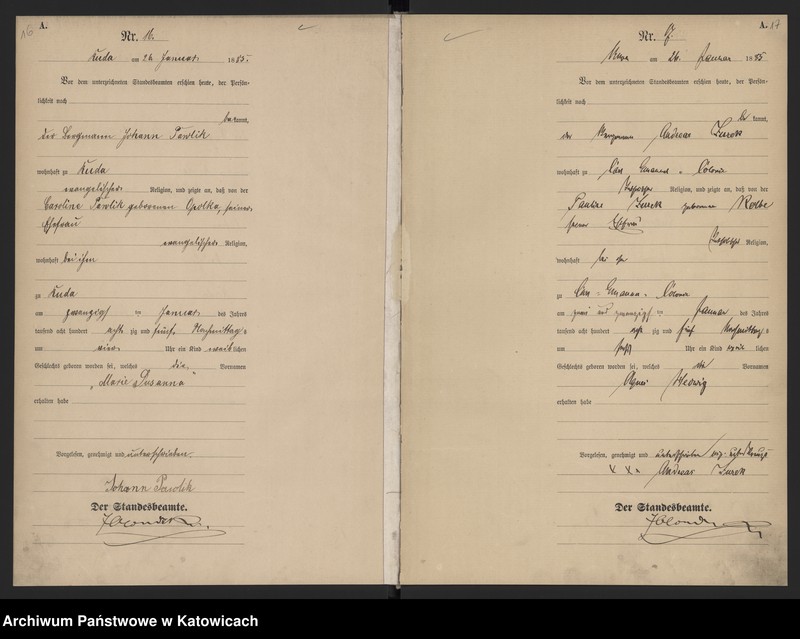 16
A.
Nr. 16.
Ruda am 24 Januar 1885.
Vor dem unterzeichneten Standesbeamten erschien heute, der Persön-
lichkeit nach
bekannt,
der Bergmann Johann Pawlik
wohnhaft zu Ruda
evangelischer Religion, und zeigte an, daß von der
Caroline Pawlik geborenen Opolka, seiner
Ehefrau
evangelischer Religion,
wohnhaft bei ihm
zu Ruda
am zwanzigsten Januar des Jahres
tausend acht hundert achtzig und fünf, Nachmittags
um vier Uhr ein Kind weiblichen
Geschlechts geboren worden sei, welches die Vornamen
„Marie Susanna"
erhalten habe
Vorgelesen, genehmigt und unterschrieben.
Johann Pawlik
Der Standesbeamte.
A. 17
Nr. 17.
Ruda am 24. Januar 1885
Vor dem unterzeichneten Standesbeamten erschien heute, der Persön-
lichkeit nach
bekannt,
der Bergmann Andreas Zurek
wohnhaft zu Carl Emanuel Colonie
Religion, und zeigte an, daß von der
Pauline Zurek geborenen
seiner Ehefrau
Religion,
wohnhaft bei ihm
zu Carl Emanuel Colonie
am zwei und zwanzigsten Januar des Jahres
tausend acht hundert achtzig und fünf Nachmittags
um Uhr ein Kind weiblichen
Geschlechts geboren worden sei, welches die Vornamen
Agnes Hedwig
erhalten habe
Vorgelesen, genehmigt und
x x x Andreas Zurek
Der Standesbeamte.
Archiwum Państwowe w Katowicach